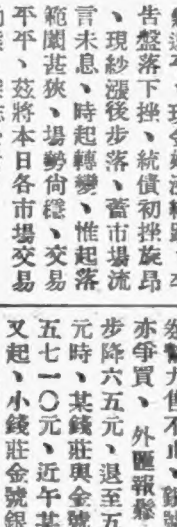 告盤落下挫、統債初挫旋昂
、現紗漲後步落、舊市場流
言未息、時起轉變、惟起落
範闈甚狹、場勢尙穩、交易
平平、茲將本日各市場交易
亦爭買、外匯報縣
步降六五元、退至五
元時、某錢莊與金號
五七一〇元、近午某
又起、小錢莊金號銀